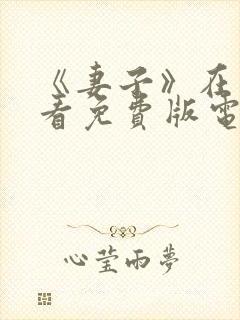 《妻子》在
看免費版電
心莹雨夢